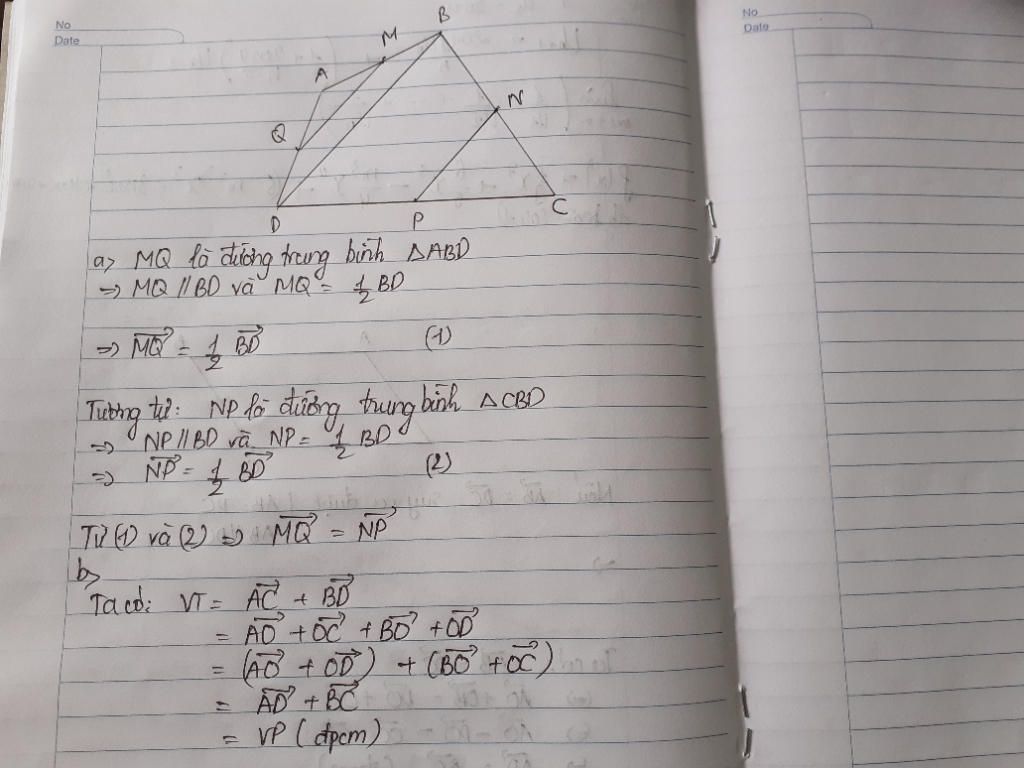 No
Date
No
Date
B
M
A
N
Q
D
P
C
a> MQ là đường trung bình ΔABD
=> MQ // BD và MQ = 1/2 BD
=> MQ→ = 1/2 BD→ (1)
Tương tự: NP là đường trung bình ΔCBD
=> NP // BD và NP = 1/2 BD
=> NP→ = 1/2 BD→ (2)
Từ (1) và (2) => MQ→ = NP→
b>
Ta có: VT = AC→ + BD→
= AO→ + OC→ + BO→ + OD→
= (AO→ + OD→) + (BO→ + OC→)
= AD→ + BC→
= VP (đpcm)